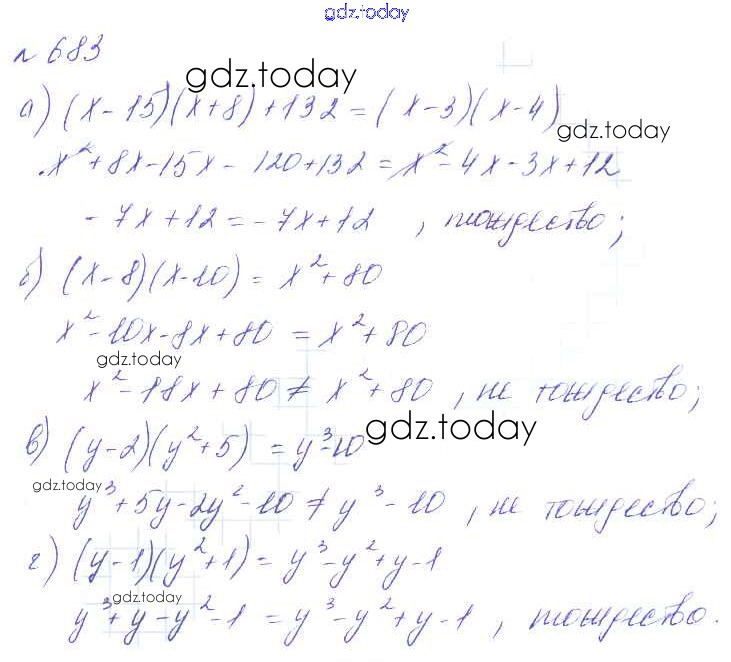 gdz.today
n 683
gdz.today
а) (x-15)(x+8)+132=(x-3)(x-4)
gdz.today
x²+8x-15x-120+132=x²-4x-3x+12
-7x+12=-7x+12 , тождество;
б) (x-8)(x-10)= x²+80
x²-10x-8x+80 = x²+80
gdz.today
x²-18x+80 ≠ x²+80 , не тождество;
в) (y-2)(y²+5) = y³-10
gdz.today
gdz.today
y³+5y-2y²-10 ≠ y³-10 , не тождество;
г) (y-1)(y²+1)= y³-y²+y-1
gdz.today
y³+y-y²-1 = y³-y²+y-1 , тождество.